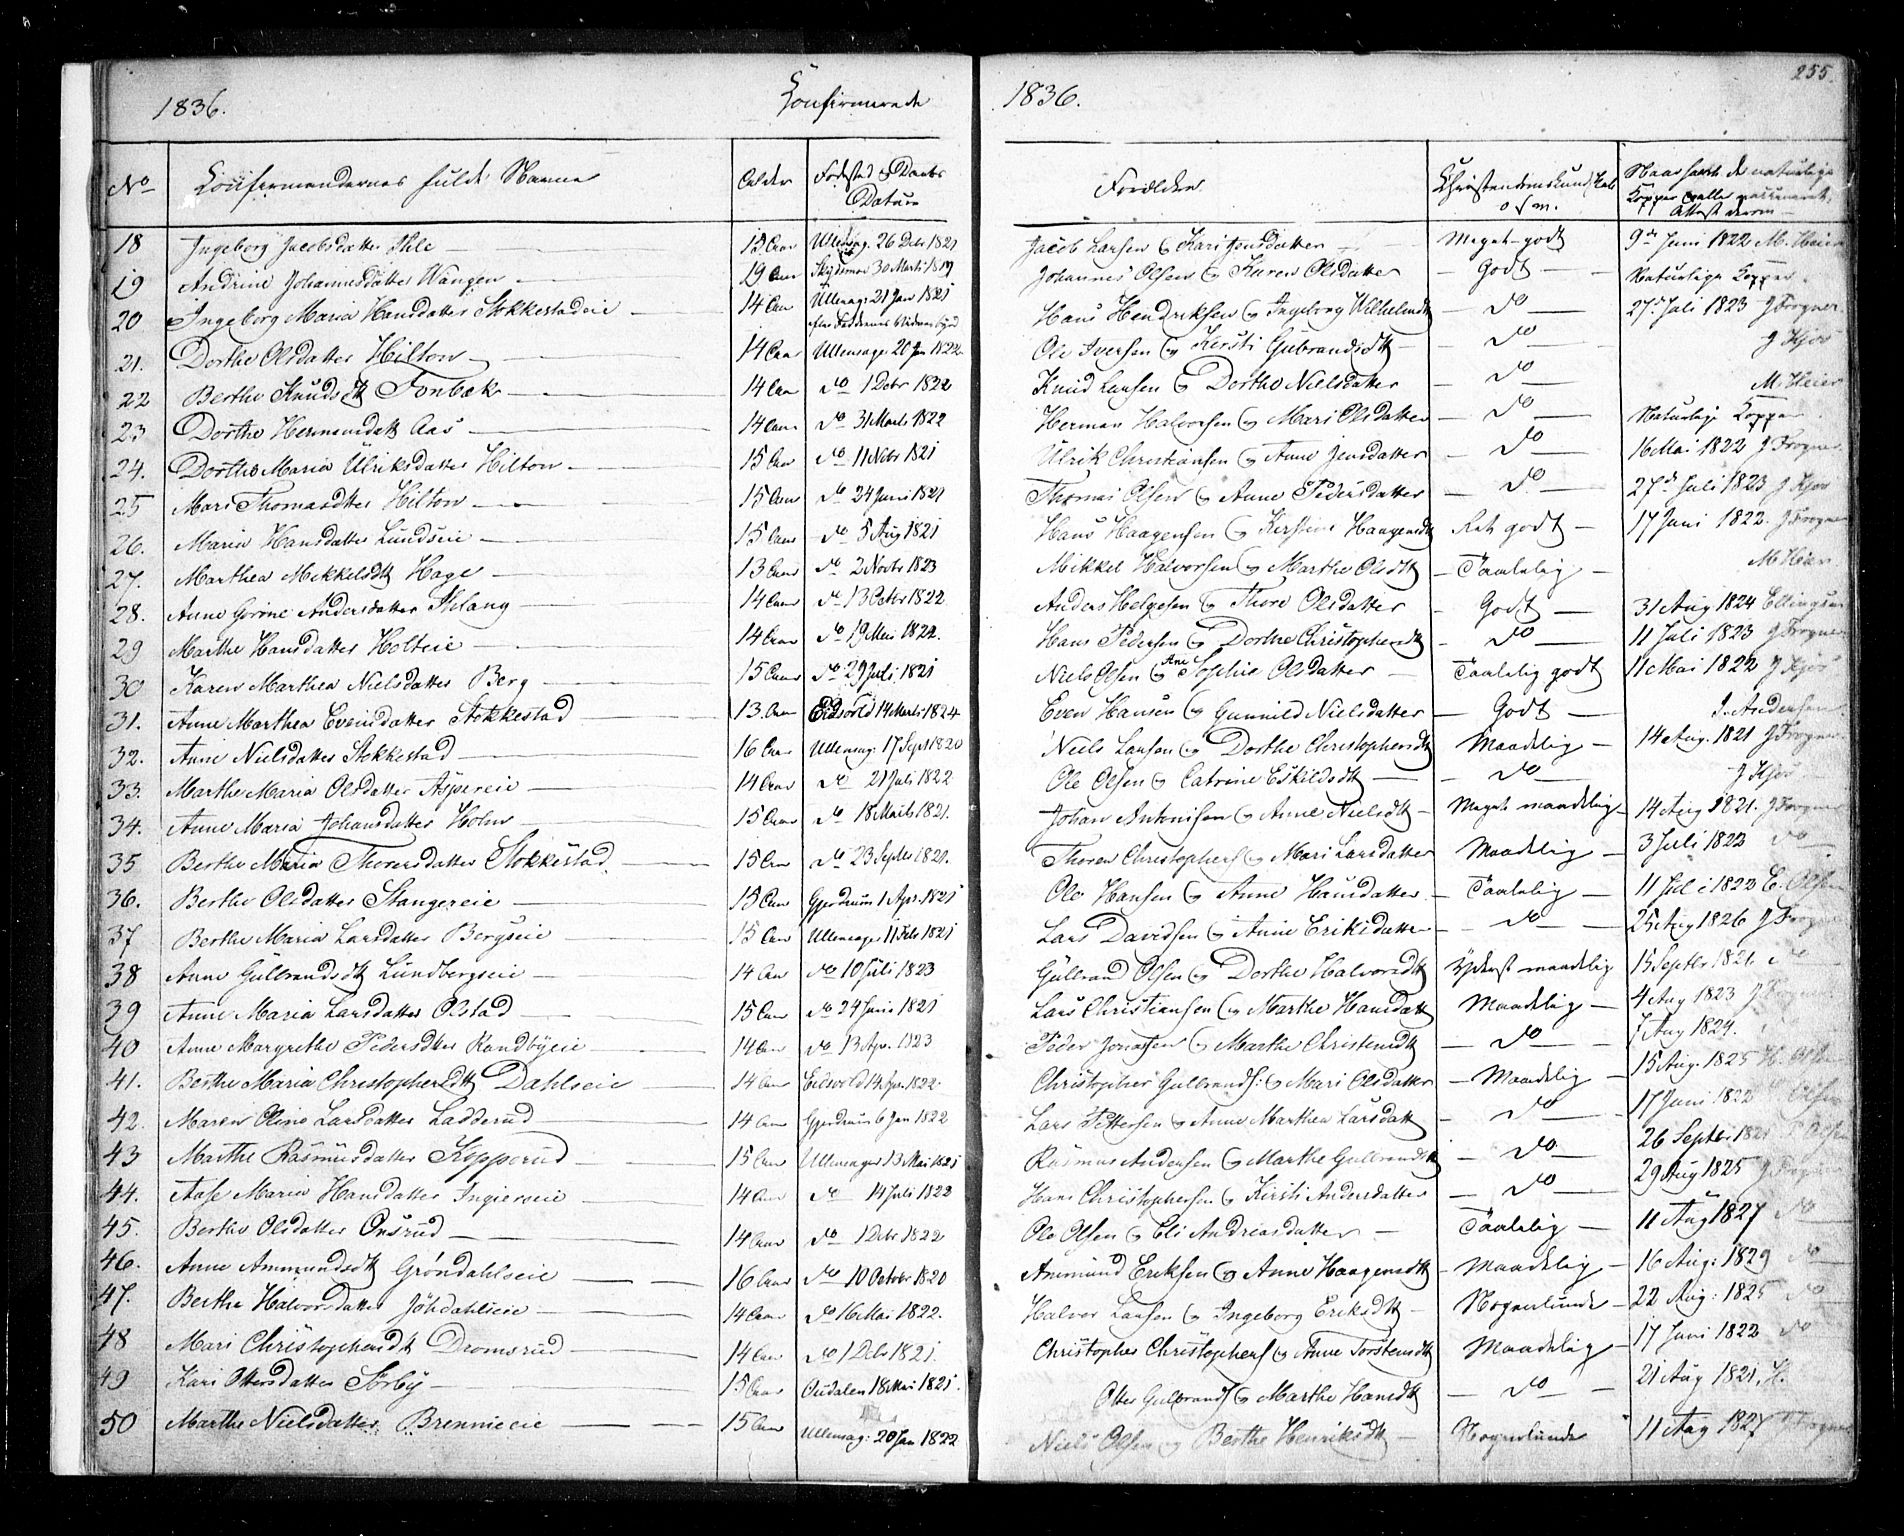 255.
1836. Confirmerede 1836.
No Confirmandernes fulde Navne Alder Fødested & Daabs Datum Forældre Christendomskundskab osv. Naar havt de naturlige Kopper eller vaccineret, Attest derom
18 Ingeborg Jacobsdatter Ihle 15 Aar Ullensag: 26 Debr 1821 Jacob Larsen & Kari Jonsdatter Meget godt 9de Juni 1822 M. Heier
19 Andrine Johannesdatter Wangen 19 Aar 30 Marti 1819 Johannes Olsen & Karen Olsdatter Godt Naturlige Kopper
20 Ingeborg Maria Hansdatter Stokkestadeie 14 Aar Ullensag: 21 Jan 1821 Hans Hendriksen & Ingeborg Wilhelmdtt do 27de Juli 1823 J Frogner
21. Dorthe Olsdatter Hilton 14 Aar Ullensager 20 Jan 1822 Ole Iversen & Kirsti Gulbrandsdtt do J Kjos
22 Berthe Knudsdtt Tonbæk 14 Aar do 1 Debr 1822 Knud Larsen & Dorthe Nielsdatter do M. Heier
23 Dorthe Hermansdatt Aas 14 Aar do 31 Marts 1822 Herman Halvorsen & Mari Olsdatter do Naturlige Kopper
24. Dorthe Maria Ulriksdatter Hilton 15 Aar do 11 Nobr 1821 Ulrik Christiansen & Anne Jensdatter do 16 Mai 1822 J Frogner
25 Mari Thomasdtter Hilton 15 Aar do 24 Juni 1821 Thomas Olsen & Anne Pedersdatter do 27de Juli 1823 J Kjos
26. Maria Hansdatter Lundseie 15 Aar do 5 Aug 1821 Hans Haagensen & Kirstine Haagensdtt Ret godt 17 Juni 1822. J Frogner
27. Marthea Mikkelsdtt Hage 13 Aar do 2 Novbr 1823 Mikkel Halvorsen & Marthe Olsdtt Taalelig M Heier
28. Anne Gorine Andersdatter Sklang 14 Aar do 13 Octbr 1822 Anders Helgesen & Thore Olsdatter Godt 31 Aug 1824 Ellingsen
29 Marthe Hansdatter Holteie 14 Aar do 19 Mai 1822. Hans Pedersen & Dorthe Christophersdtt do 11 Juli 1823 J Frogner
30 Karen Marthea Nielsdatter Berg 15 Aar do 29 Juli 1821 Niels Olsen & Ane Sophie Olsdatter Taalelig godt 11 Mai 1822 J Kjos
31. Anne Marthea Evensdatter Stokkestad 13 Aar Eidsvold 14 Marts 1824 Even Hansen & Gunnild Nielsdatter Godt J. Andersen
32. Anne Nielsdatter Stokkestad 16 Aar Ullensag: 17 Sept 1820 Niels Larsen & Dorthe Christophersdtt Maadelig 14 Aug. 1821 J Frogner
33. Marthe Maria Olsdatter Aspereie 14 Aar do 21 Juli 1822 Ole Olsen & Catrine Eskildsdtt do J Kjos
34. Anne Maria Johansdatter Holm 15 Aar do 18 Marts 1821. Johan Antonisen & Anne Nielsdtt Meget maadelig 14 Aug 1821. J Frogner
35 Berthe Maria Thoresdatter Stokkestad 15 Aar do 23 Septbr 1821. Thoren Christophers & Mari Larsdatter Maadelig 3 Juli 1822 do
36. Berthe Olsdatter Stangereie 15 Aar Gjerdrum 1 Apr. 1821 Ole Hansen & Anne Hansdatter Taalelig 11 Juli 1822 C. Olsen
37 Berthe Maria Larsdatter Bergseie 15 Aar Ullensager 11 Feb 1821 Lars Davidsen & Anne Eriksdatter do 25 Aug 1826 J Frogner
38 Anne Gulbrandsdtt Lundbergseie 14 Aar do 10 Juli 1823 Gulbrand Olsen & Dorthe Halvorsdtt Yderst maadelig 15 Septbr 1821. do
39 Anne Maria Larsdatter Olstad 15 Aar do 24 Juni 1821 Lars Christiansen & Marthe Hansdatt Maadelig 4 Aug 1823 J Frogner
40 Anne Margrethe Pedersdtter Randbyeie 14 Aar do 13 Apr. 1823 Peder Jonassen & Marthe Christensdtt do 7 Aug 1824.
41. Berthe Maria Christophersdtt Dahlseie 14 Aar Eidsvold 14 Apr. 1822. Christopher Gulbrands: & Mari Olsdatter Maadelig 15 Aug. 1825 H. Olsen
42. Maren Oline Larsdatter Ladderud 14 Aar Gjerdrum 6 Jan 1822 Lars Pettersen & Anne Marthea Larsdatt do 17 Juni 1822 Olsen
43 Marthe Rasmusdatter Kopperud 15 Aar Ullensager 13 Mai 1821 Rasmus Andersen & Marthe Gulbrandsdtt do 26 Septbr 1821 Olsen
44. Aase Maria Hansdatter Ingiereie 14 Aar do 14 Juli 1822 Hans Christophersen & Kirsti Andersdatter do 29 Aug 1825 J Frogner
45. Berthe Olsdatter Onsrud 14 Aar do 1 Debr 1822 Ole Olsen & Eli Andreasdatter Taalelig 11 Aug 1827 do
46. Anne Ammundsdtt Grøndahlseie 16 Aar do 10 Octobr 1820 Ammund Eriksen & Anne Haagensdtt Maadelig 16 Aug: 1829 do
47. Berthe Halvorsdatter Jøhdahleie 14 Aar do 16 Mai 1822. Halvor Larsen & Ingeborg Eriksdtt Nogenlunde 22 Aug: 1825 do
48 Mari Christophersdt Dromsrud 14 Aar do 1 Debr 1821. Christopher Christophers & Anne Torstensdtt Maadelig 17 Juni 1822 do
49 Kari Ottersdatter Sørby 15 Aar Oudalen 18 Mai 1821. Otter Gulbrands & Marthe Hansdtt do 21 Aug 1821. H.
50 Marthe Nielsdatter Brennieeie 15 Aar Ullensag: 20 Jan 1822 Niels Olsen og Berthe Henriksdtt Nogenlunde 11 Aug 1827 Frogner